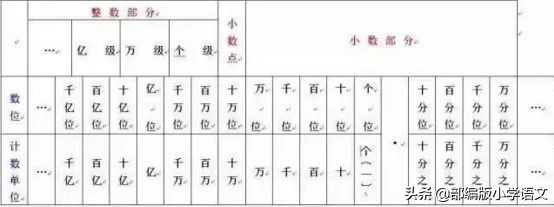 整数部分 小数点 小数部分
… 亿级 万级 个级
数位 … 千亿位 百亿位 十亿位 亿位 千万位 百万位 十万位 万位 千位 百位 十位 个位 · 十分位 百分位 千分位 万分位 …
计数单位 … 千亿 百亿 十亿 亿 千万 百万 十万 万 千 百 十 个(一) 十分之 百分之 千分之 万分之 …
头条 @部编版小学语文